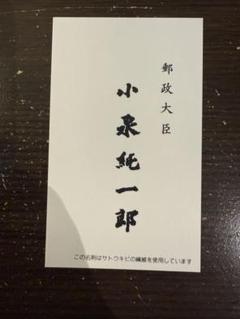 郵政大臣
小泉純一郎
この名刺はサトウキビの繊維を使用しています